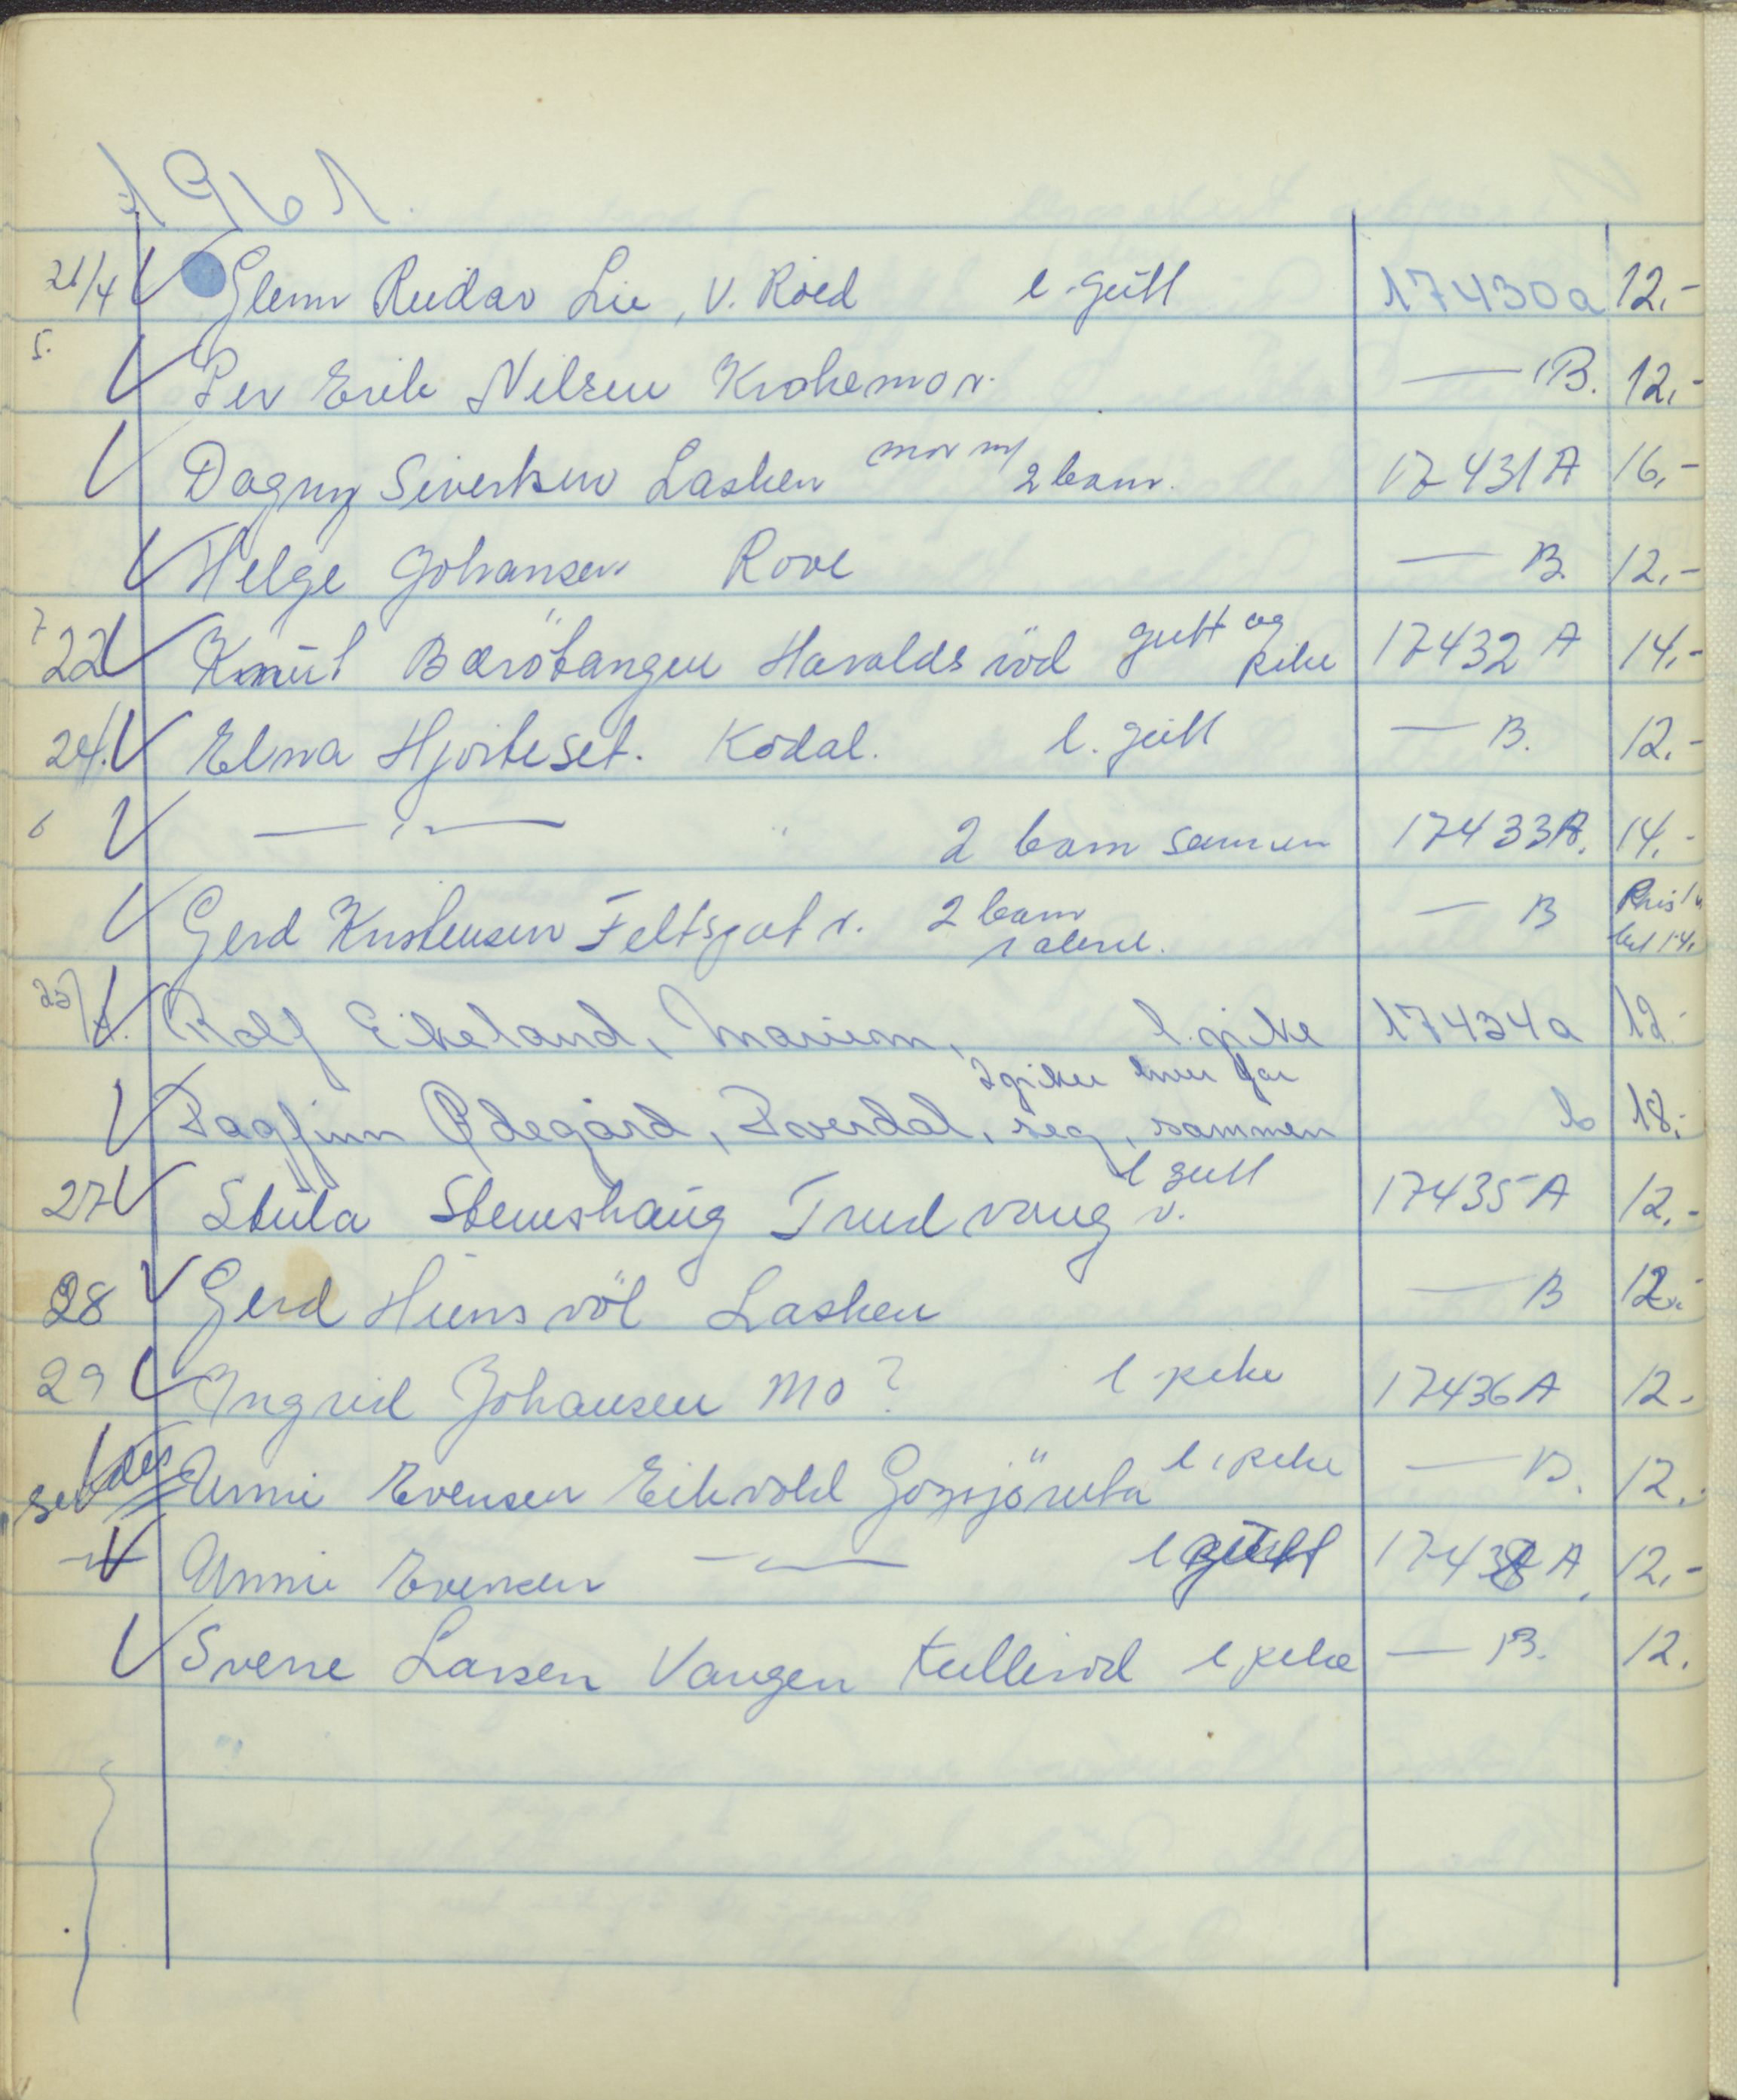 1961.
21/4 V Glenn Reidar Lie, V. Röed l. gütt 17430a 12.-
5. V Per Erik Nilsen Krokemo v. — B. 12,-
V Dagny Sivertsen Lasken mor m/ 2 barn. 17431 A 16,-
V Helge Johansen Rove — B. 12,-
7 22 V Knüt Barötangen Haraldsröd gutt og pike 17432 A 14,-
24. V Elna Hjorteset. Kodal. l. gütt — B. 12.-
6 V — " — " 2 barn sammen 17433A. 14.-
V Gerd Kristensen Feltspat v. 2 barn 1 alene. — B
25/4. V Rolf Eikeland, l. pike 17434a 12.-
V Dagfinn Ødegård, Tverdal, 2 piker hver for seg, sammen b 18.-
27 V Stüla Stemshaüg Trudvang v. l gutt 17435 A 12.-
28 V Gerd Lasken — B 12.-
29 V Ingrid Johansen Mo? l pike 17436 A 12.-
V Anni Evensen Eikvold l. pike — B. 12.-
V Annie Evensen — " — l gütt 17438 A. 12,-
V Sverre Larsen Vangen Tulleröd l pike — B. 12.